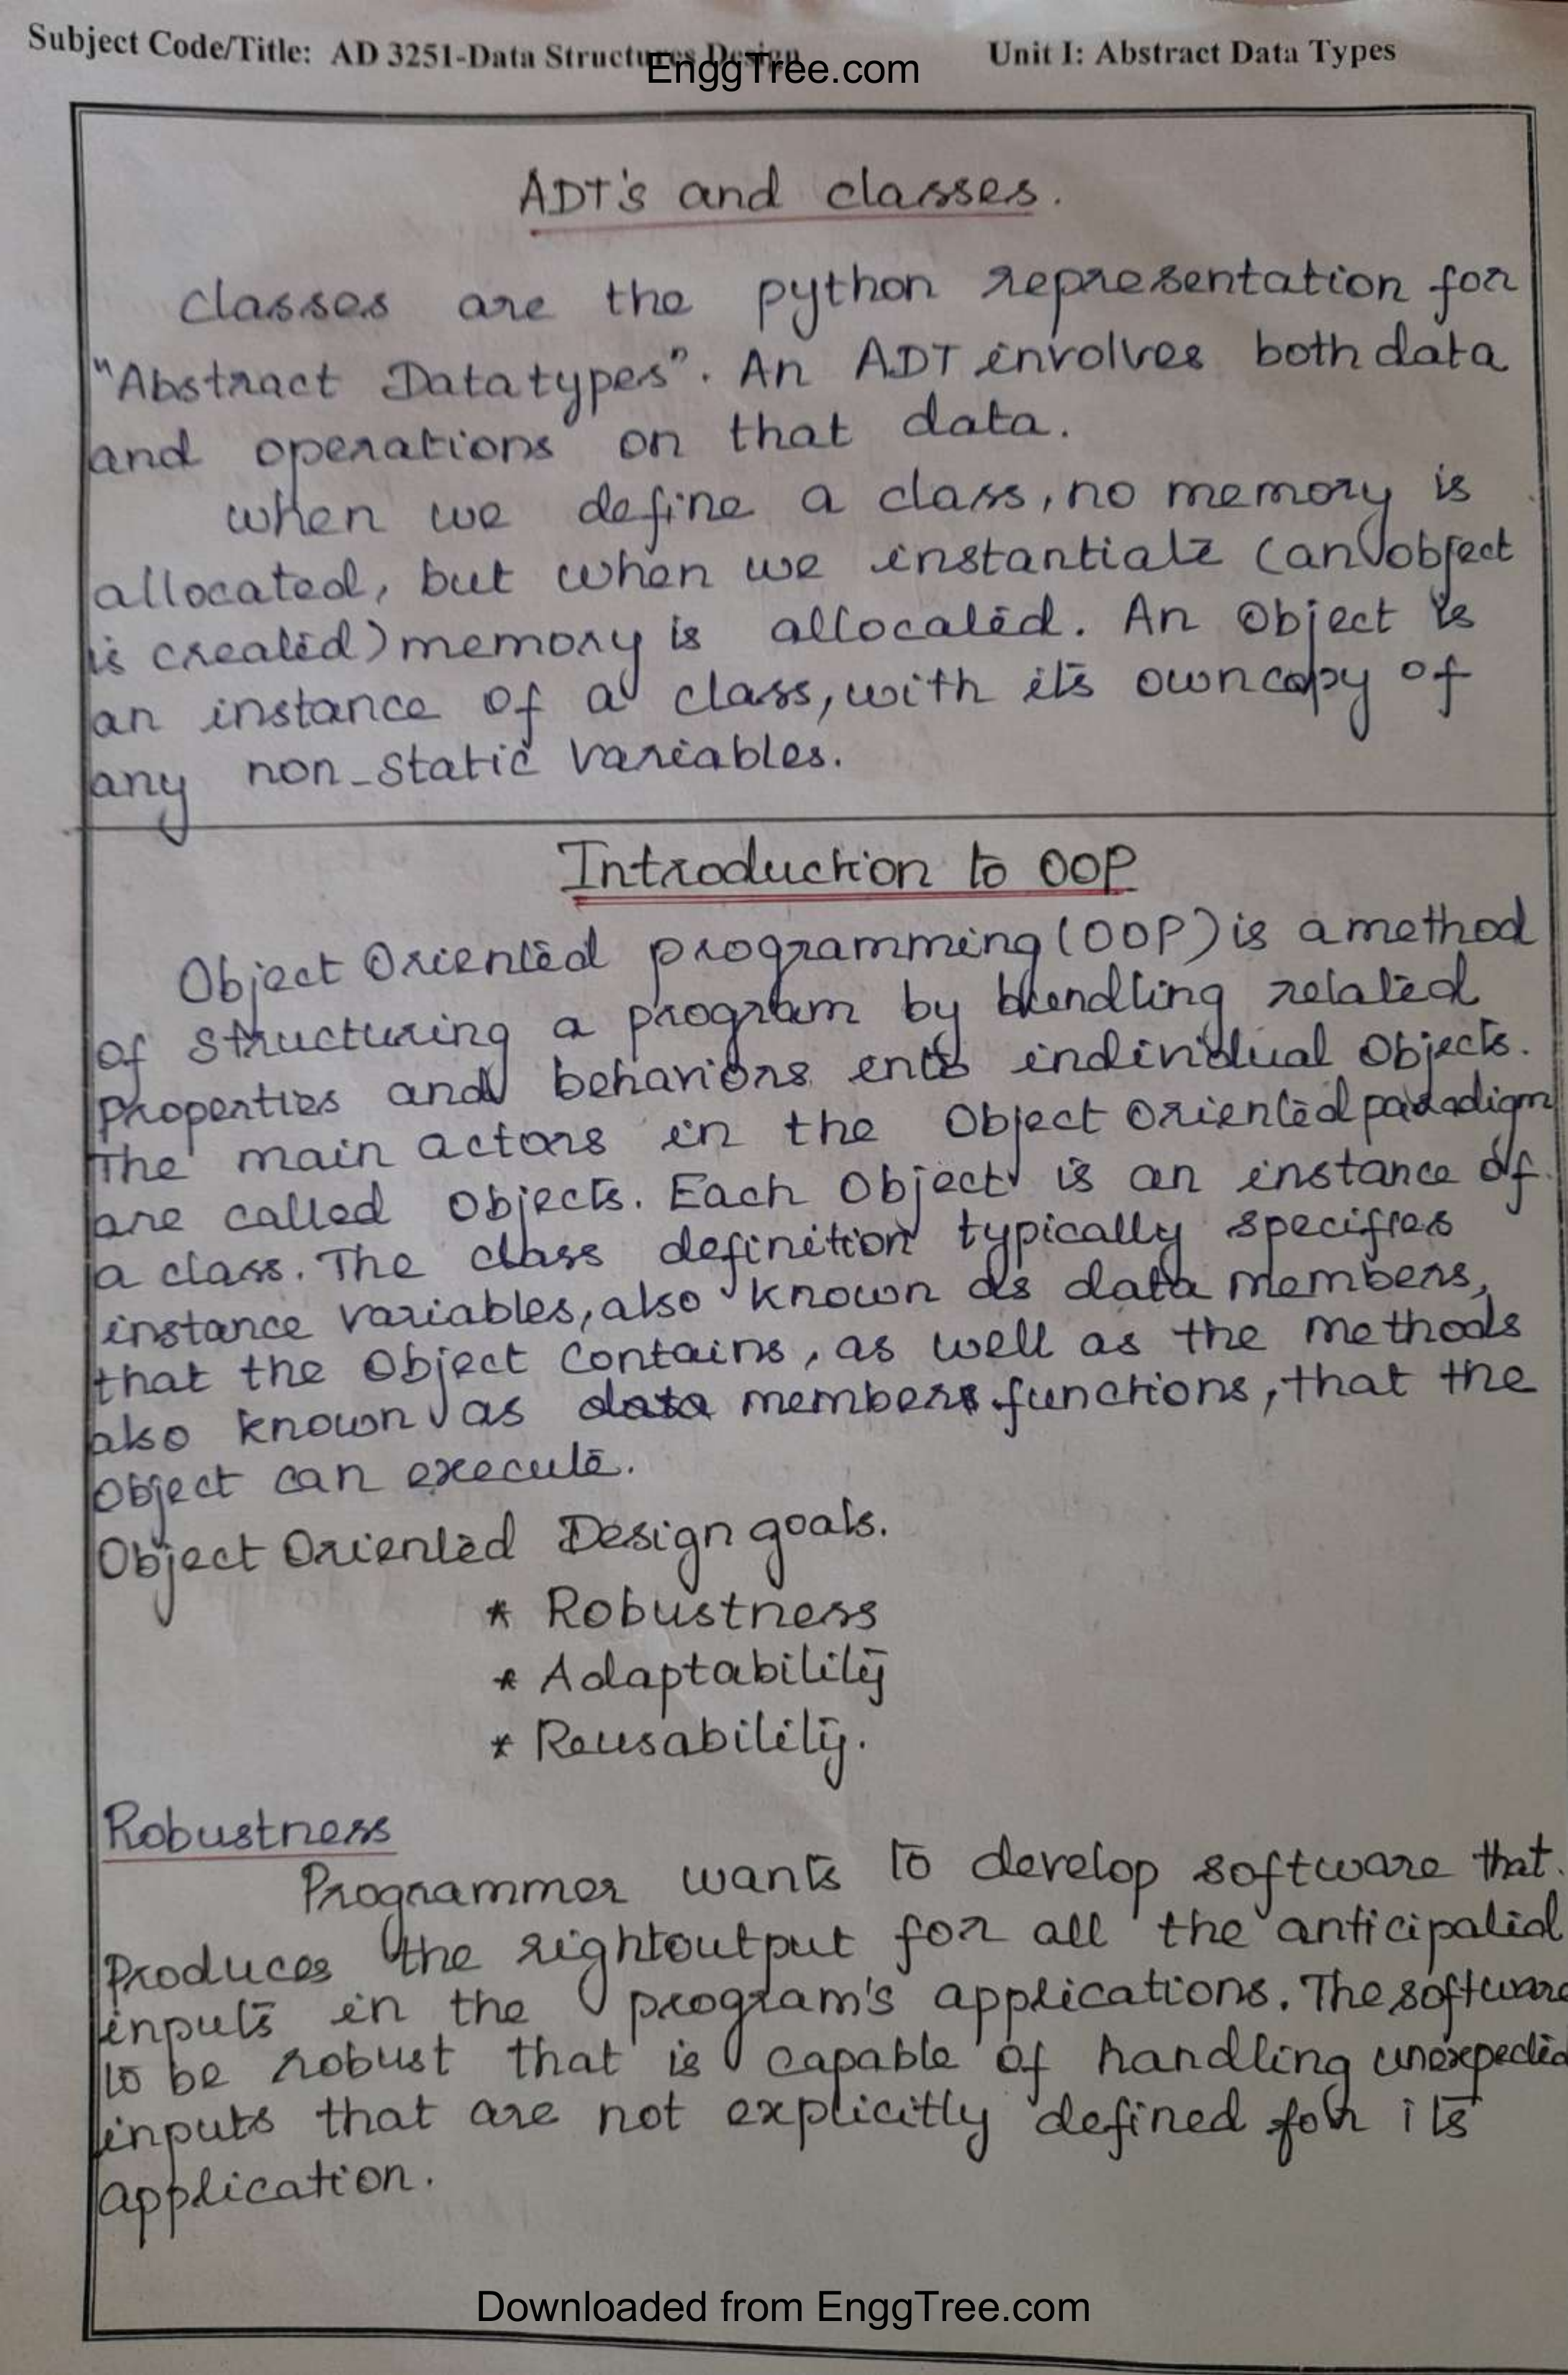 Subject Code/Title: AD 3251-Data Structures Design
EnggTree.com
Unit I: Abstract Data Types
ADT's and classes.
classes are the python representation for
"Abstract Datatypes". An ADT involves both data
and operations on that data.
when we define a class, no memory is
allocated, but when we instantiate (an object
is created) memory is allocated. An Object is
an instance of a class, with its own copy of
any non-static variables.
Introduction to OOP
Object Oriented programming (OOP) is a method
of structuring a program by bundling related
properties and behaviors into individual Objects.
The main actors in the Object Oriented paradigm
are called Objects. Each Object is an instance of
a class. The class definition typically specifies
instance variables, also known as data members,
that the Object contains, as well as the methods
also known as data members functions, that the
Object can execute.
Object Oriented Design goals.
* Robustness
* Adaptability
* Reusability.
Robustness
Programmer wants to develop software that
produces the right output for all the anticipated
inputs in the program's applications. The software
to be robust that is capable of handling unexpected
inputs that are not explicitly defined for its
application.
Downloaded from EnggTree.com